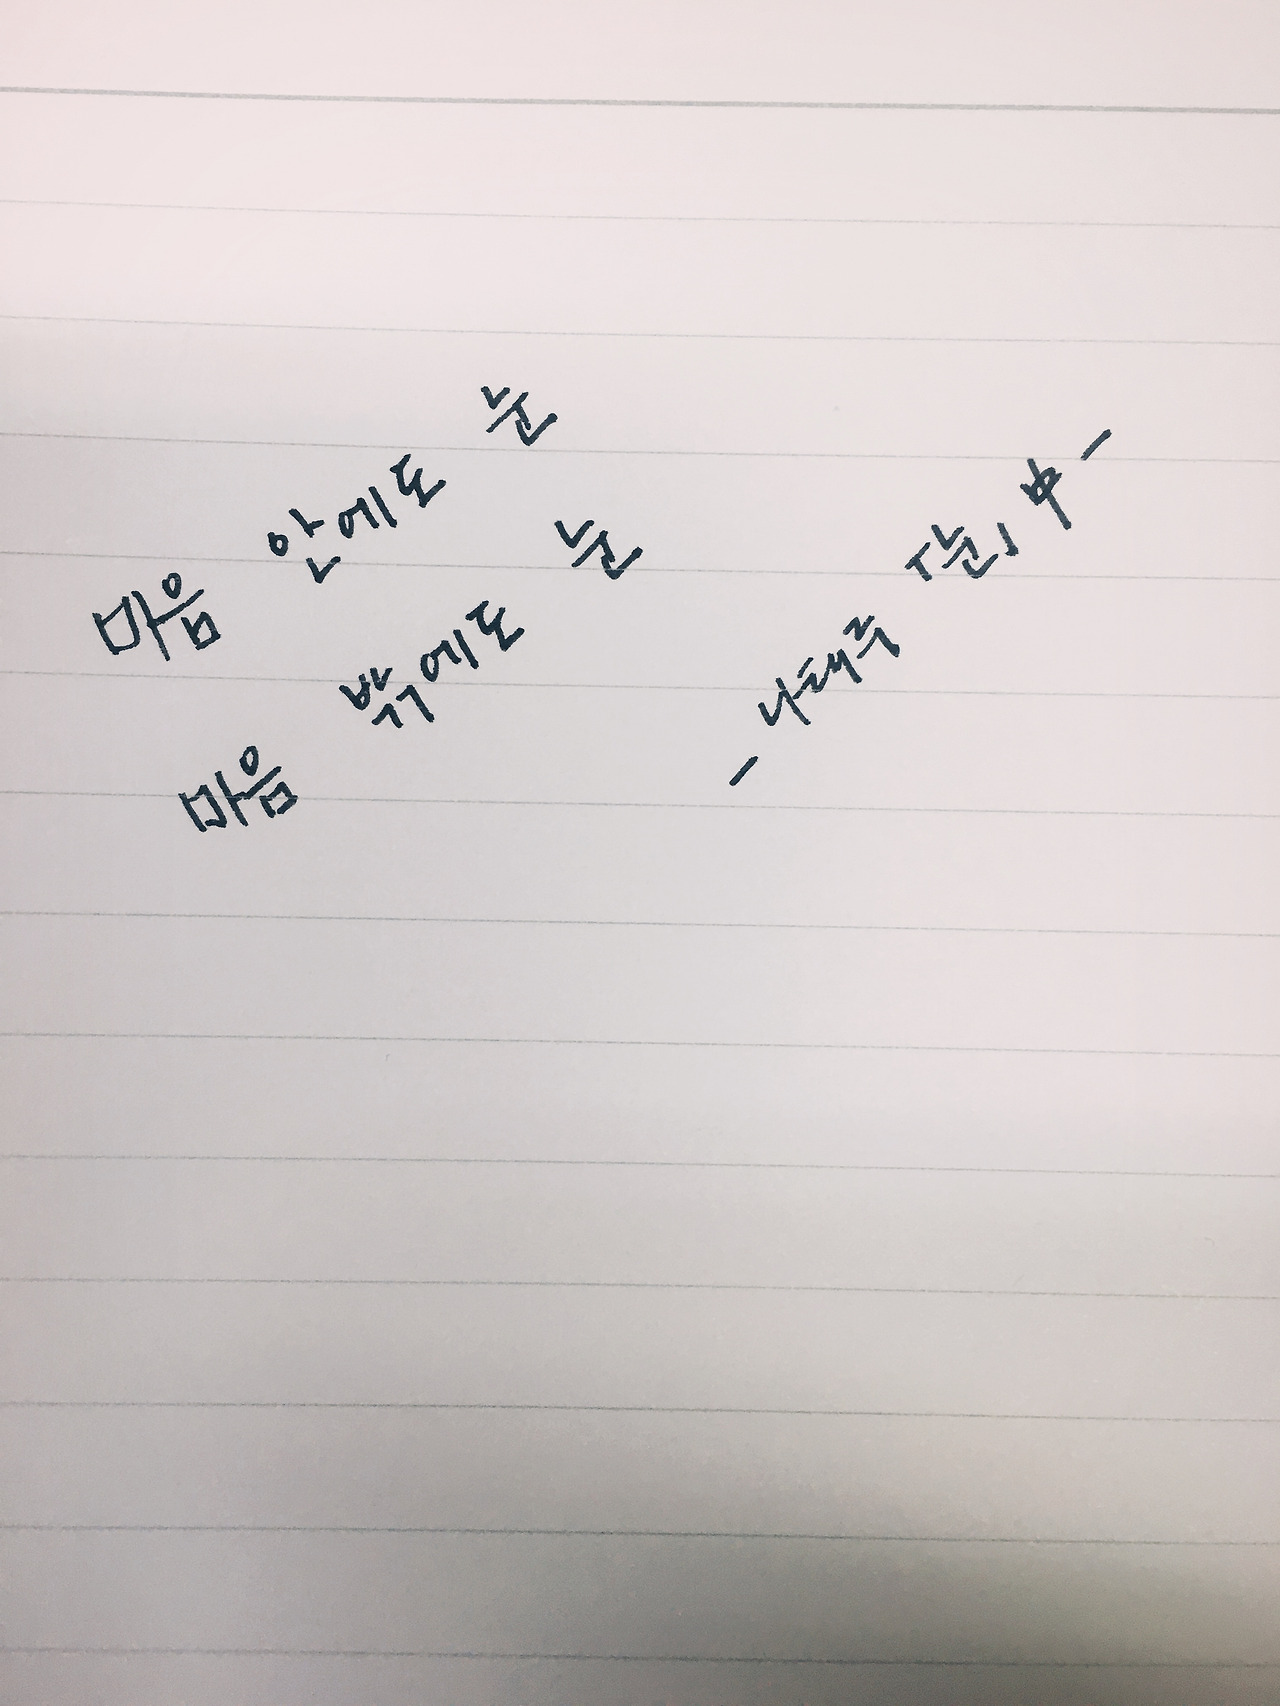 마음 안에도 눈
마음 밖에도 눈
- 나태주 「눈」 中 -